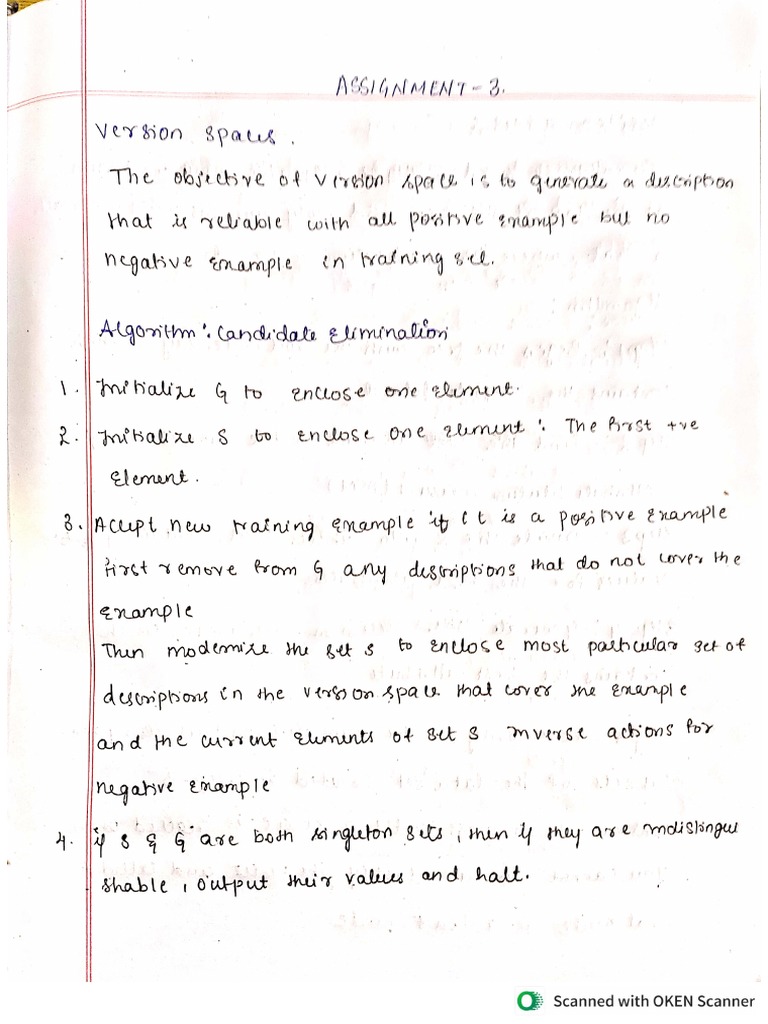 ASSIGNMENT - 3.
Version spaces.
The objective of version space is to generate a description
that is reliable with all positive example but no
negative example in training set.
Algorithm : Candidate Elimination
1. Initialize G to enclose one element.
2. Initialize S to enclose one element : The first +ve
Element.
3. Accept new training example if it is a positive example
first remove from G any descriptions that do not cover the
example
Then modernize the set S to enclose most particular set of
descriptions in the version space that cover the example
and the current elements of set S inverse actions for
negative example
4. if S & G are both singleton sets, then if they are indistingui
shable, output their values and halt.
Scanned with OKEN Scanner